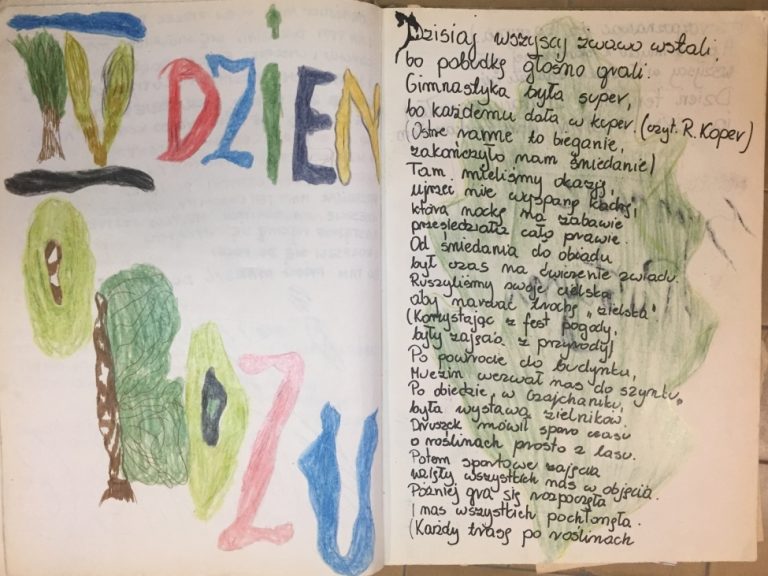 IV DZIEŃ
OBOZU
Dzisiaj wszyscy żwawo wstali,
bo pobudkę głośno grali.
Gimnastyka była super,
bo każdemu dała w kuper. (czyt. R. Koper)
(Ostre ranne to bieganie,
zakończyło nam śniadanie)
Tam mieliśmy okazję,
ujrzeć nie wyspaną
którą nockę na zabawie
przesiedziała całą prawie.
Od śniadania do obiadu
był czas na ćwiczenie zwiadu.
Ruszyliśmy swoje cielska
aby narwać trochę „zielska"
(Korzystając z fest pogody,
były zajęcia z przyrody)
Po powrocie do budynku,
Muezin wezwał nas do szynku.
Po obiedzie, w czajchaniku,
była wystawa zielników.
Druszek mówił sporo czasu
o roślinach prosto z lasu.
Potem sportowe zajęcia
wzięły wszystkich nas w objęcia.
Później gra się rozpoczęła
i nas wszystkich pochłonęła.
(Każdy trasę po roślinach